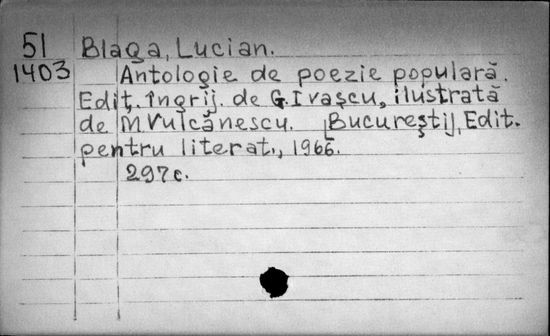 51 Blaga, Lucian.
1403 Antologie de poezie populară.
Edit. îngrij. de G. Ivaşcu, ilustrată
de M Vulcănescu. [Bucureşti], Edit.
pentru literat., 1966.
297 c.